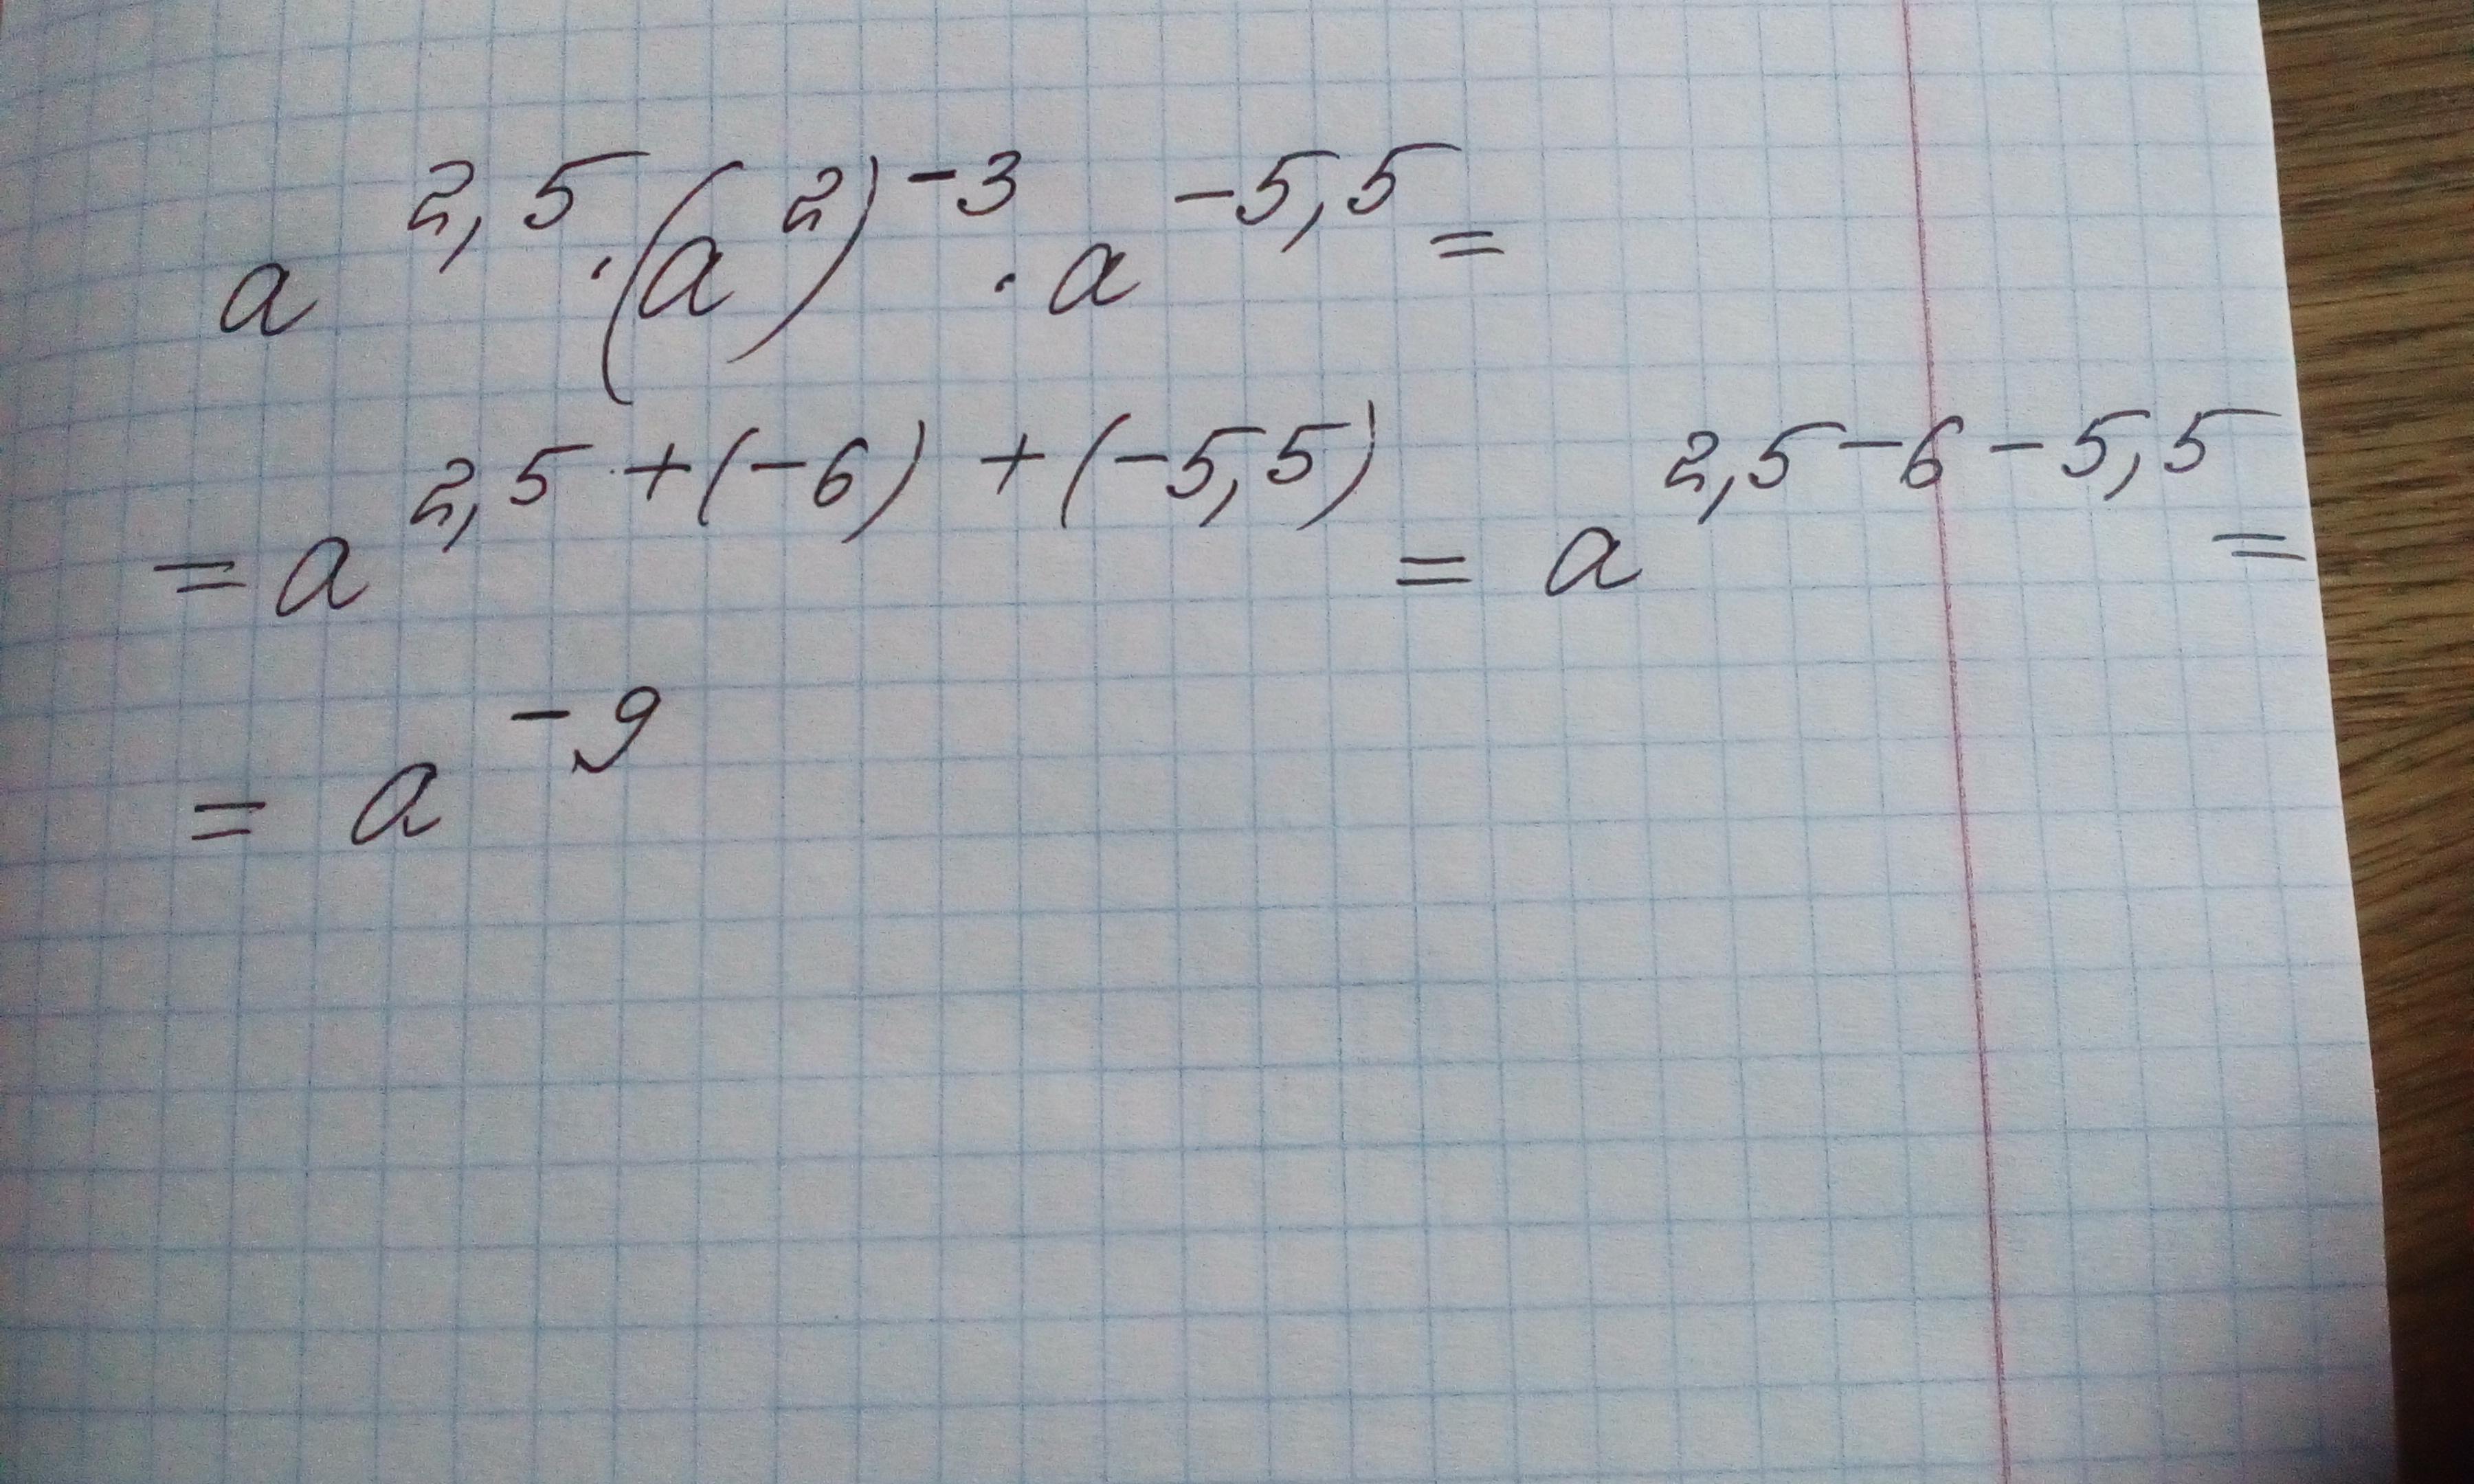 a^{2,5} · (a^{2})^{-3} · a^{-5,5} =
= a^{2,5 + (-6) + (-5,5)} = a^{2,5 - 6 - 5,5} =
= a^{-9}